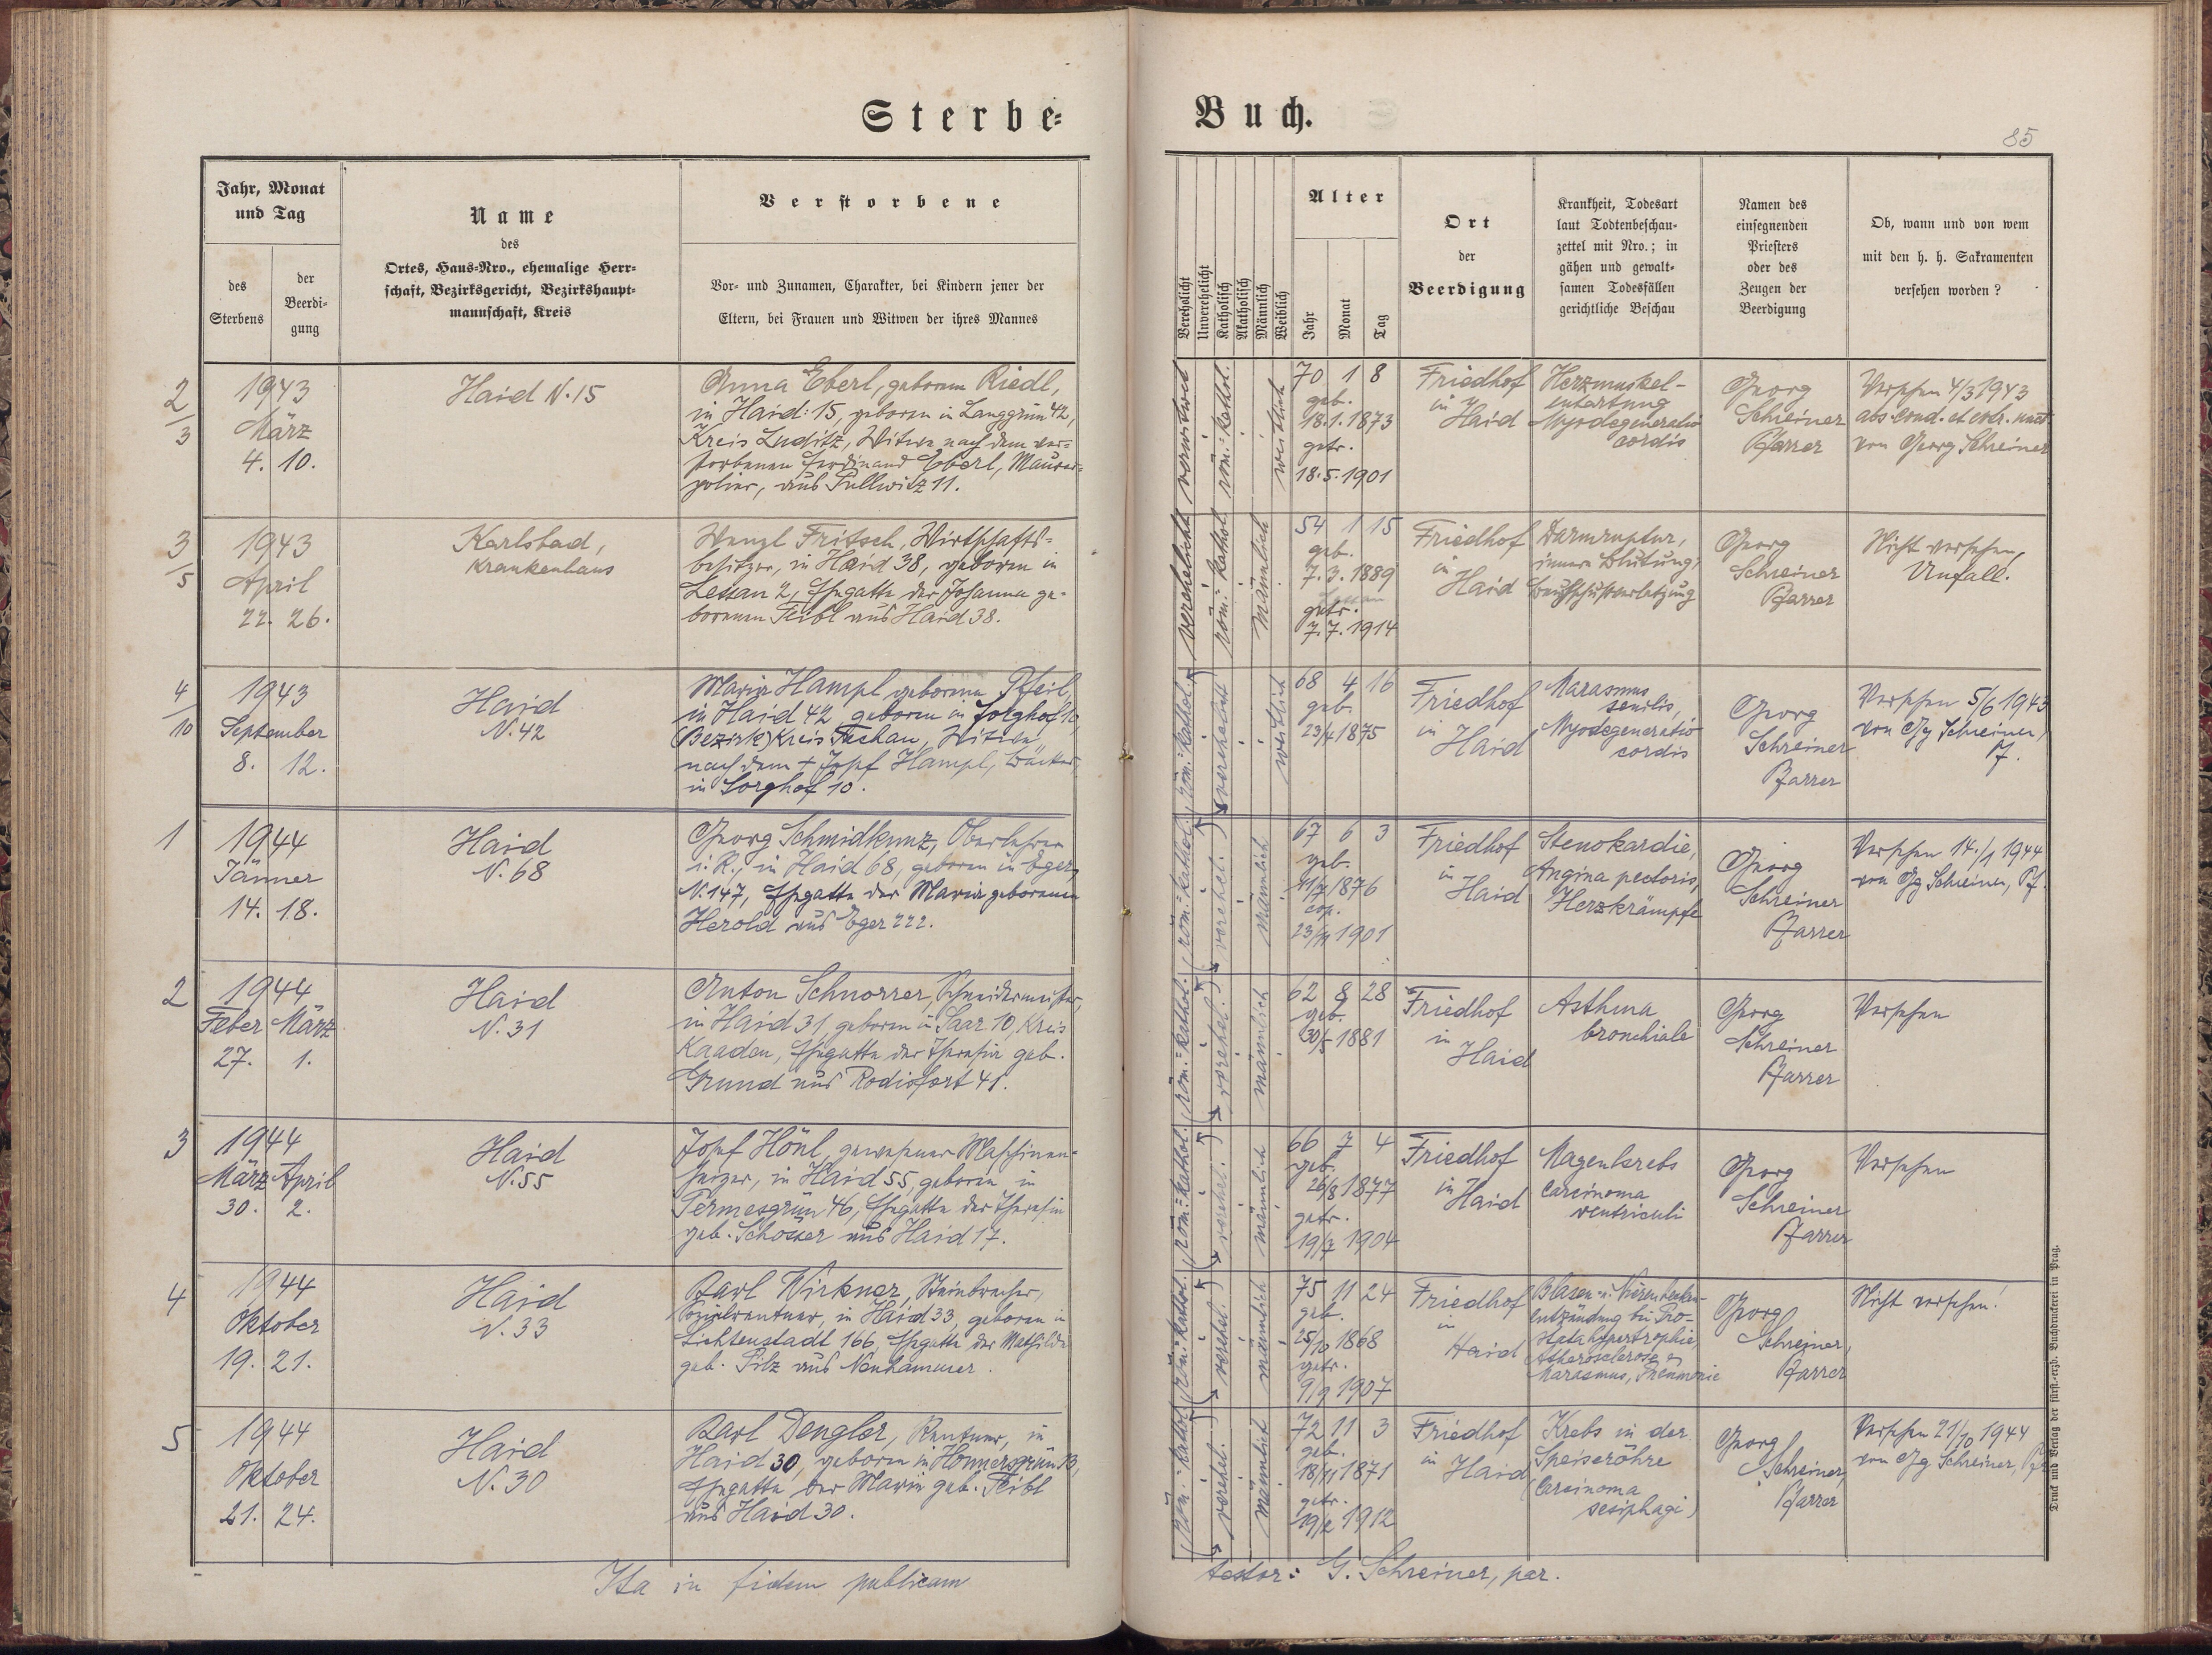 Sterbe-
Buch.
85
Jahr, Monat
und Tag
des
Sterbens
der
Beerdi-
gung
Name
des
Ortes, Haus-Nro., ehemalige Herr-
schaft, Bezirksgericht, Bezirkshaupt-
mannschaft, Kreis
Verstorbene
Vor- und Zunamen, Charakter, bei Kindern jener der
Eltern, bei Frauen und Witwen der ihres Mannes
Verehelicht
Unverehelicht
Katholisch
Akatholisch
Männlich
Weiblich
Alter
Jahr
Monat
Tag
Ort
der
Beerdigung
Krankheit, Todesart
laut Todtenbeschau-
zettel mit Nro.; in
gähen und gewalt-
samen Todesfällen
gerichtliche Beschau
Namen des
einsegnenden
Priesters
oder des
Zeugen der
Beerdigung
Ob, wann und von wem
mit den h. h. Sakramenten
versehen worden?
2/3
1943
März
4. 10.
Haid N. 15
Anna Eberl, geborene Riedl,
in Haid: 15, geboren in Langgrün 42,
Kreis Luditz, Witwe nach dem ver=
storbenen Ferdinand Eberl, Maurer=
polier, aus Sullwitz 11.
verwitwet
röm.=kathol.
weiblich
70 1 8
geb.
18.1.1873
getr.
18.5.1901
Friedhof
in
Haid
Herzmuskel-
entartung
Myodegeneratio
cordis
Georg
Schreiner
Pfarrer
Versehen 4/3 1943
abs. cond. et extr. unct.
von Georg Schreiner
3/5
1943
April
22. 26.
Karlsbad,
Krankenhaus
Wenzl Fritsch, Wirtschafts=
besitzer, in Haid 38, geboren in
Lessau 2, Ehegatte der Johanna ge-
borenen Feibl aus Haid 38.
verehelicht
röm.=kathol.
männlich
54 1 15
geb.
7.3.1889
Lessau
getr.
7.7.1914
Friedhof
in
Haid
Darmruptur,
innere Blutung,
Georg
Schreiner
Pfarrer
Nicht versehen,
Unfall.
4/10
1943
September
8. 12.
Haid
N. 42
Maria Hampl geborene Pfeil,
in Haid 42, geboren in Sorghof 10,
(Bezirk) Kreis Tachau, Witwe
nach dem + Josef Hampl, Bäcker,
in Sorghof 10.
röm.=kathol.
verehelicht
weiblich
68 4 16
geb.
23/4 1875
Friedhof
in
Haid
Marasmus
senilis,
Myodegeneratio
cordis
Georg
Schreiner
Pfarrer
Versehen 5/6 1943
von Gg Schreiner,
Pf.
1
1944
Jänner
14. 18.
Haid
N. 68
Georg Schmidkunz, Oberlehrer
i. R., in Haid 68, geboren in Eger,
N. 147, Ehegatte der Maria geborenen
Herold aus Eger 222.
röm.=kathol.
verehel.
männlich
67 6 3
geb.
11/7 1876
cop.
23/11 1901
Friedhof
in
Haid
Stenokardie,
Angina pectoris,
Herzkrämpfe
Georg
Schreiner
Pfarrer
Versehen 14./1 1944
von Gg Schreiner, Pf.
2
1944
Feber März
27. 1.
Haid
N. 31
Anton Schnorrer, Schneidermeister,
in Haid 31, geboren in Saar 10, Kreis
Kaaden, Ehegatte der Theresia geb.
Grund aus Rodisfort 41.
röm.=kathol.
verehel.
männlich
62 8 28
geb.
30/5 1881
Friedhof
in
Haid
Asthma
bronchiale
Georg
Schreiner
Pfarrer
Versehen
3
1944
März April
30. 2.
Haid
N. 55
Josef Hönl, gewesener Maschinen-
heizer, in Haid 55, geboren in
Permesgrün 46, Ehegatte der Theresia
geb. Schosser aus Haid 17.
röm.=kathol.
verehel.
männlich
66 7 4
geb.
26/8 1877
getr.
19/7 1904
Friedhof
in
Haid
Magenkrebs
Carcinoma
ventriculi
Georg
Schreiner
Pfarrer
Versehen
4
1944
Oktober
19. 21.
Haid
N. 33
Karl Wirkner, Steinbrecher,
Sozialrentner, in Haid 33, geboren in
Lichtenstadt 166, Ehegatte der Mathilda
geb. Pilz aus Neuhammer.
röm.=kathol.
verehel.
männlich
75 11 24
geb.
25/10 1868
getr.
9/9 1907
Friedhof
in
Haid
Blasen- u. Nierenbecken-
entzündung bei Pro-
statahypertrophie,
Atherosclerose,
Marasmus, Pneumonie
Georg
Schreiner,
Pfarrer
Nicht versehen!
5
1944
Oktober
21. 24.
Haid
N. 30
Karl Dengler, Rentner, in
Haid 30, geboren in Honnersgrün 13,
Ehegatte der Maria geb. Feibl
aus Haid 30.
röm.=kathol.
verehel.
männlich
72 11 3
geb.
18/11 1871
getr.
19/2 1912
Friedhof
in
Haid
Krebs in der
Speiseröhre
(Carcinoma
oesiphagi)
Georg
Schreiner,
Pfarrer
Versehen 21/10 1944
von Gg Schreiner, Pfr
Ita in fidem publicam
testor: G. Schreiner, par.
Druck und Verlag der fürst.-erzb. Buchdruckerei in Prag.